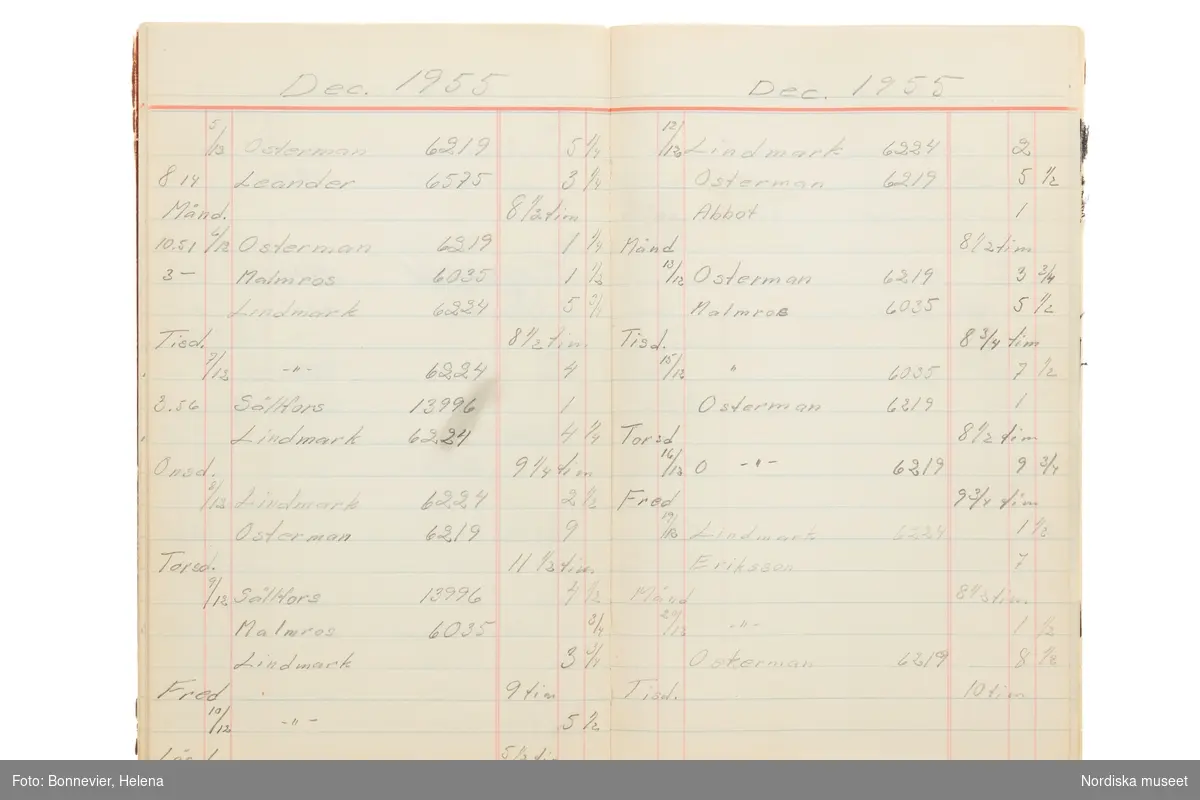 Dec. 1955
5/12 Osterman 6219 5 1/4
8 14 Leander 6575 3 1/4
Månd. 8 1/2 tim
10.51 6/12 Osterman 6219 1 1/4
3 — Malmros 6035 1 1/2
Lindmark 6224 5 3/4
Tisd. 8 1/2 tim
7/12 -"- 6224 4
3.56 Sälfors 13996 1
Lindmark 6224 4 1/4
Onsd. 9 1/4 tim
8/12 Lindmark 6224 2 1/2
Osterman 6219 9
Torsd. 11 1/2 tim
9/12 Sälfors 13996 4 1/2
Malmros 6035 3/4
Lindmark 3 3/4
Fred 9 tim
10/12 -"- 5 1/2
5 1/2 tim
Dec. 1955
12/12 Lindmark 6224 2
Osterman 6219 5 1/2
Abbot 1
Månd 8 1/2 tim
13/12 Osterman 6219 3 3/4
Malmros 6035 5 1/2
Tisd. 8 3/4 tim
15/12 " 6035 7 1/2
Osterman 6219 1
Torsd 8 1/2 tim
16/12 O -"- 6219 9 3/4
Fred 9 3/4 tim
19/12 Lindmark 6224 1 1/2
Eriksson 7
Månd 8 1/2 tim
20/12 -"- 1 1/2
Osterman 6219 8 1/2
Tisd. 10 tim
Foto: Bonnevier, Helena
Nordiska museet